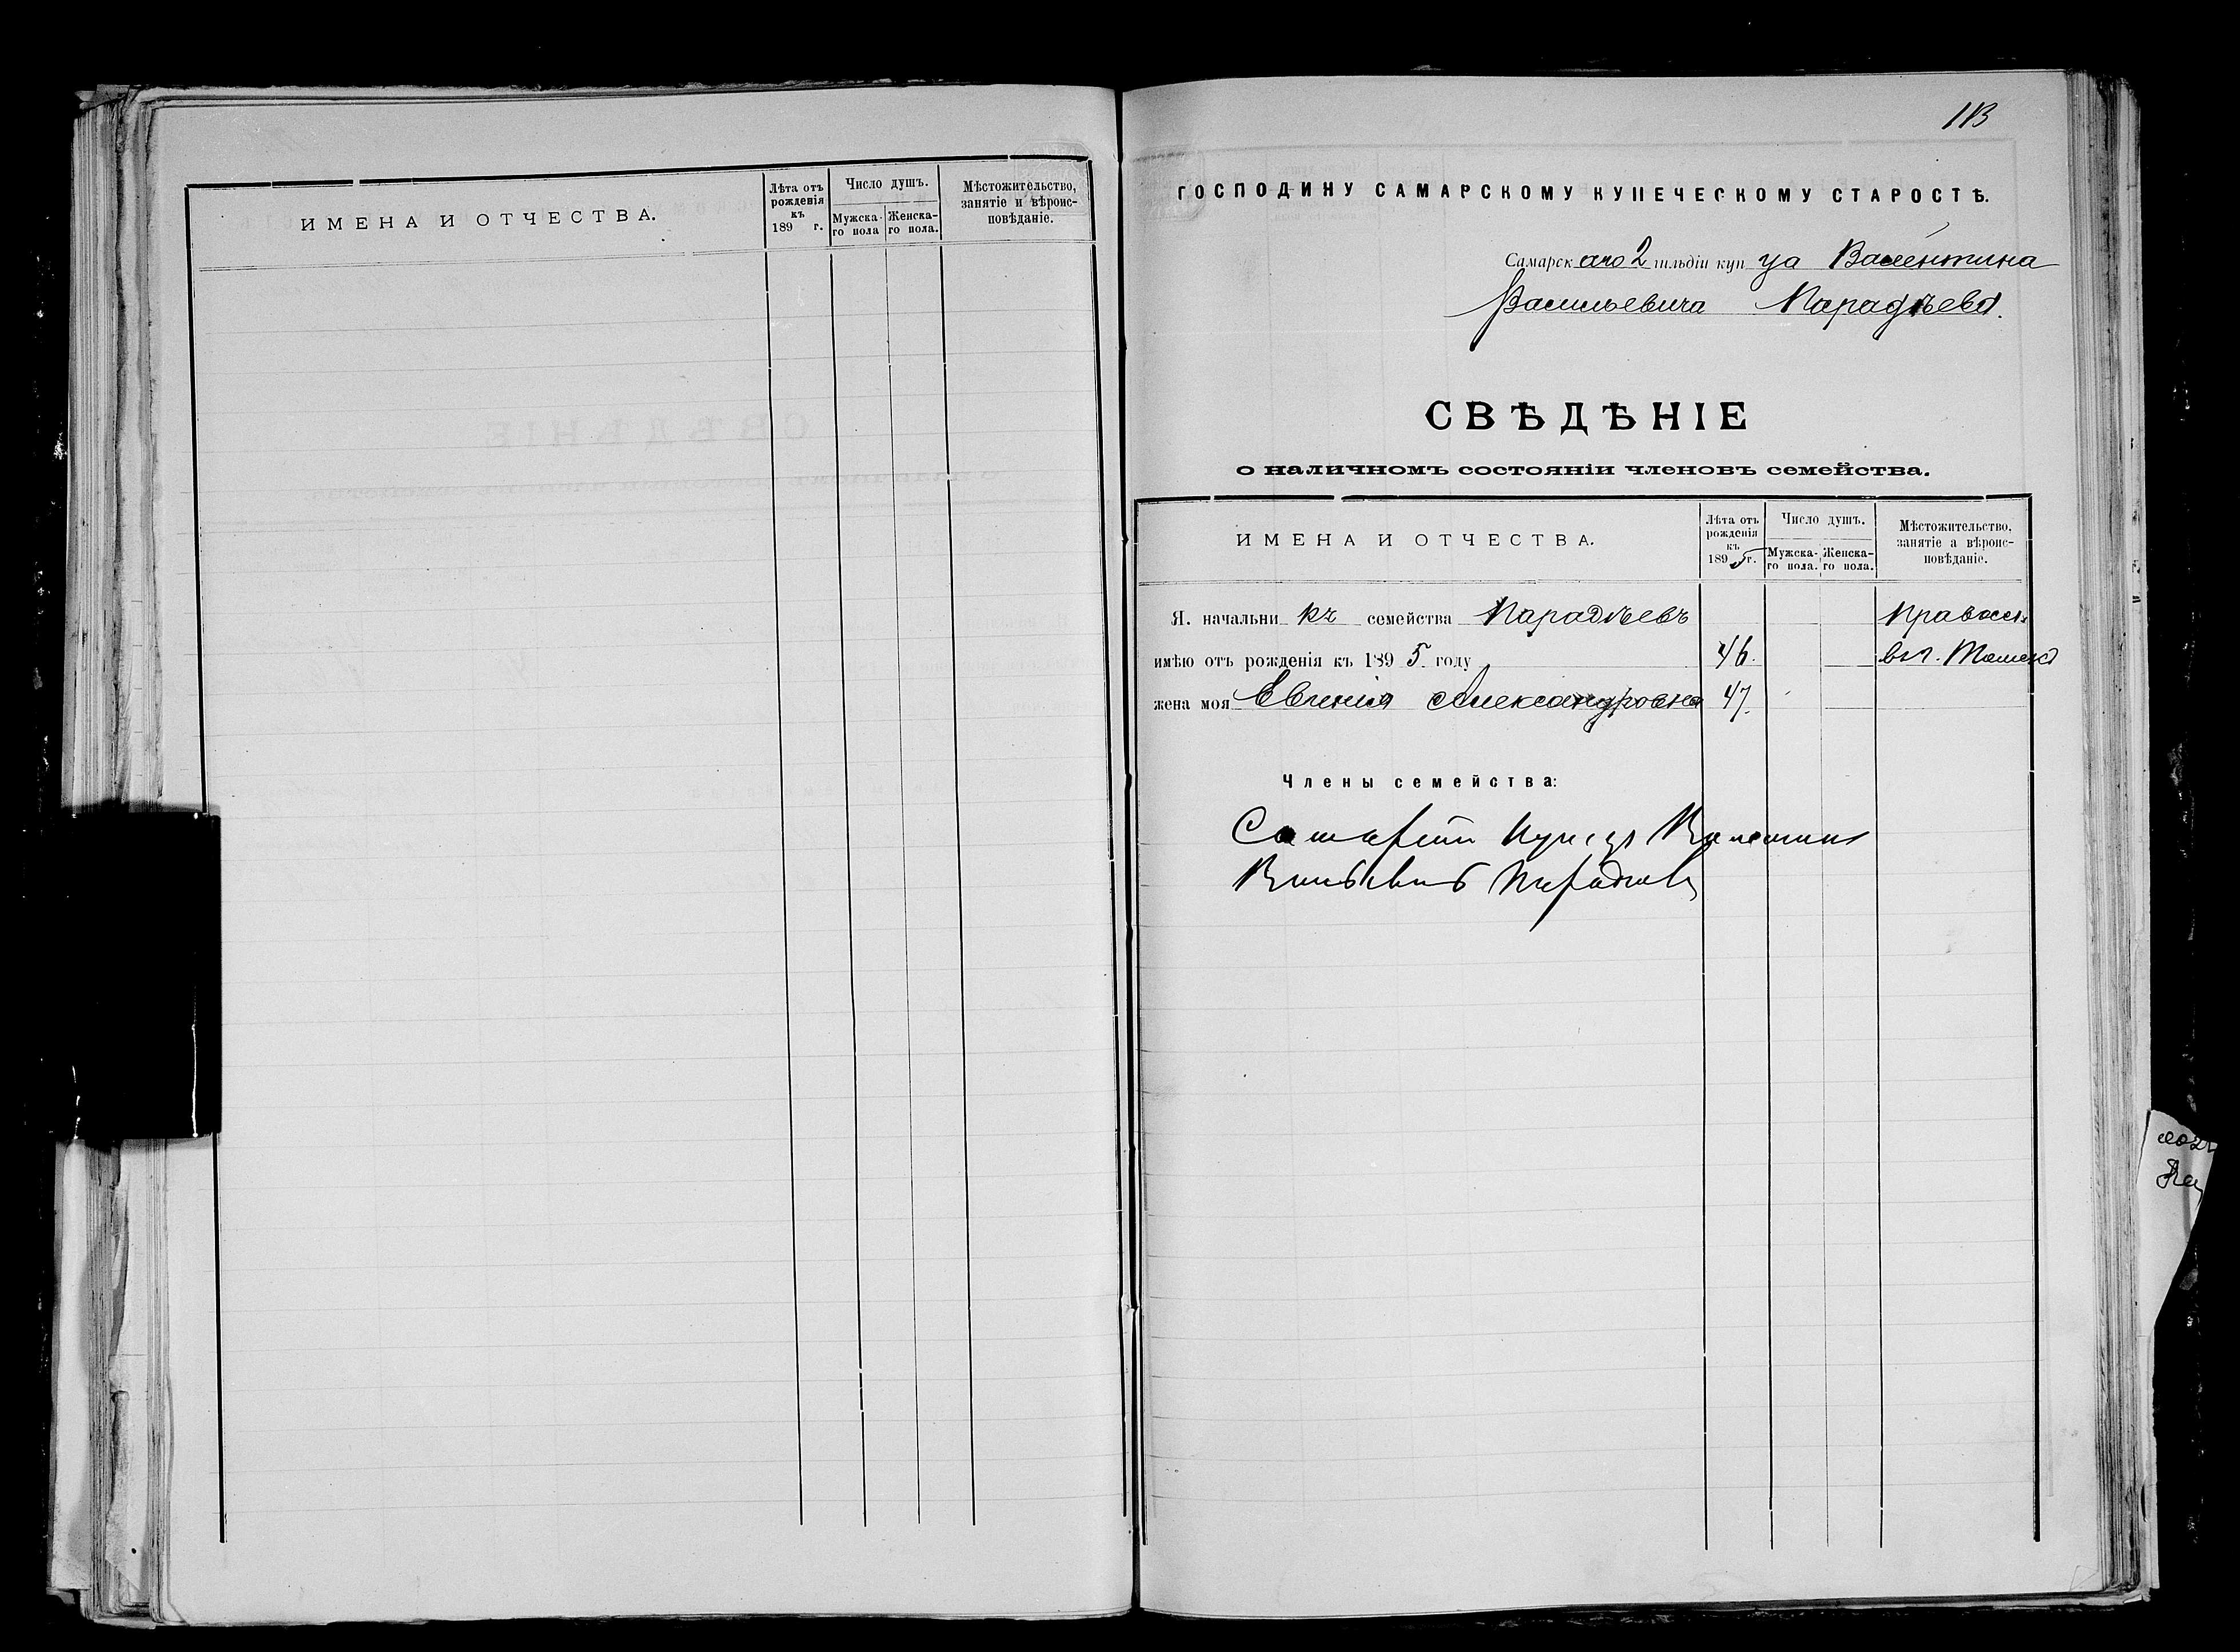 ИМЕНА И ОТЧЕСТВА.
Лѣта отъ рожденія къ 189 г.
Число душъ.
Мужска-го пола
Женска-го пола.
Мѣстожительство, занятіе и вѣроис-повѣданіе.
113
ГОСПОДИНУ САМАРСКОМУ КУПЕЧЕСКОМУ СТАРОСТѢ.
Самарскаго 2 гильдіи купца Валентина
Васильевича Парадѣева.
СВѢДѢНІЕ
о наличномъ состояніи членовъ семейства.
ИМЕНА И ОТЧЕСТВА.
Лѣта отъ рожденія къ 1895 г.
Число душъ.
Мужска-го пола.
Женска-го пола.
Мѣстожительство, занятіе а вѣроис-повѣданіе.
Я. начальникъ семейства Парадѣевъ Правосл.
имѣю отъ рожденія къ 1895 году 46. въ г.
жена моя Евгенія Александровна 47.
Члены семейства:
Самарскій Купецъ Валентинъ
Васильевичъ Парадѣевъ